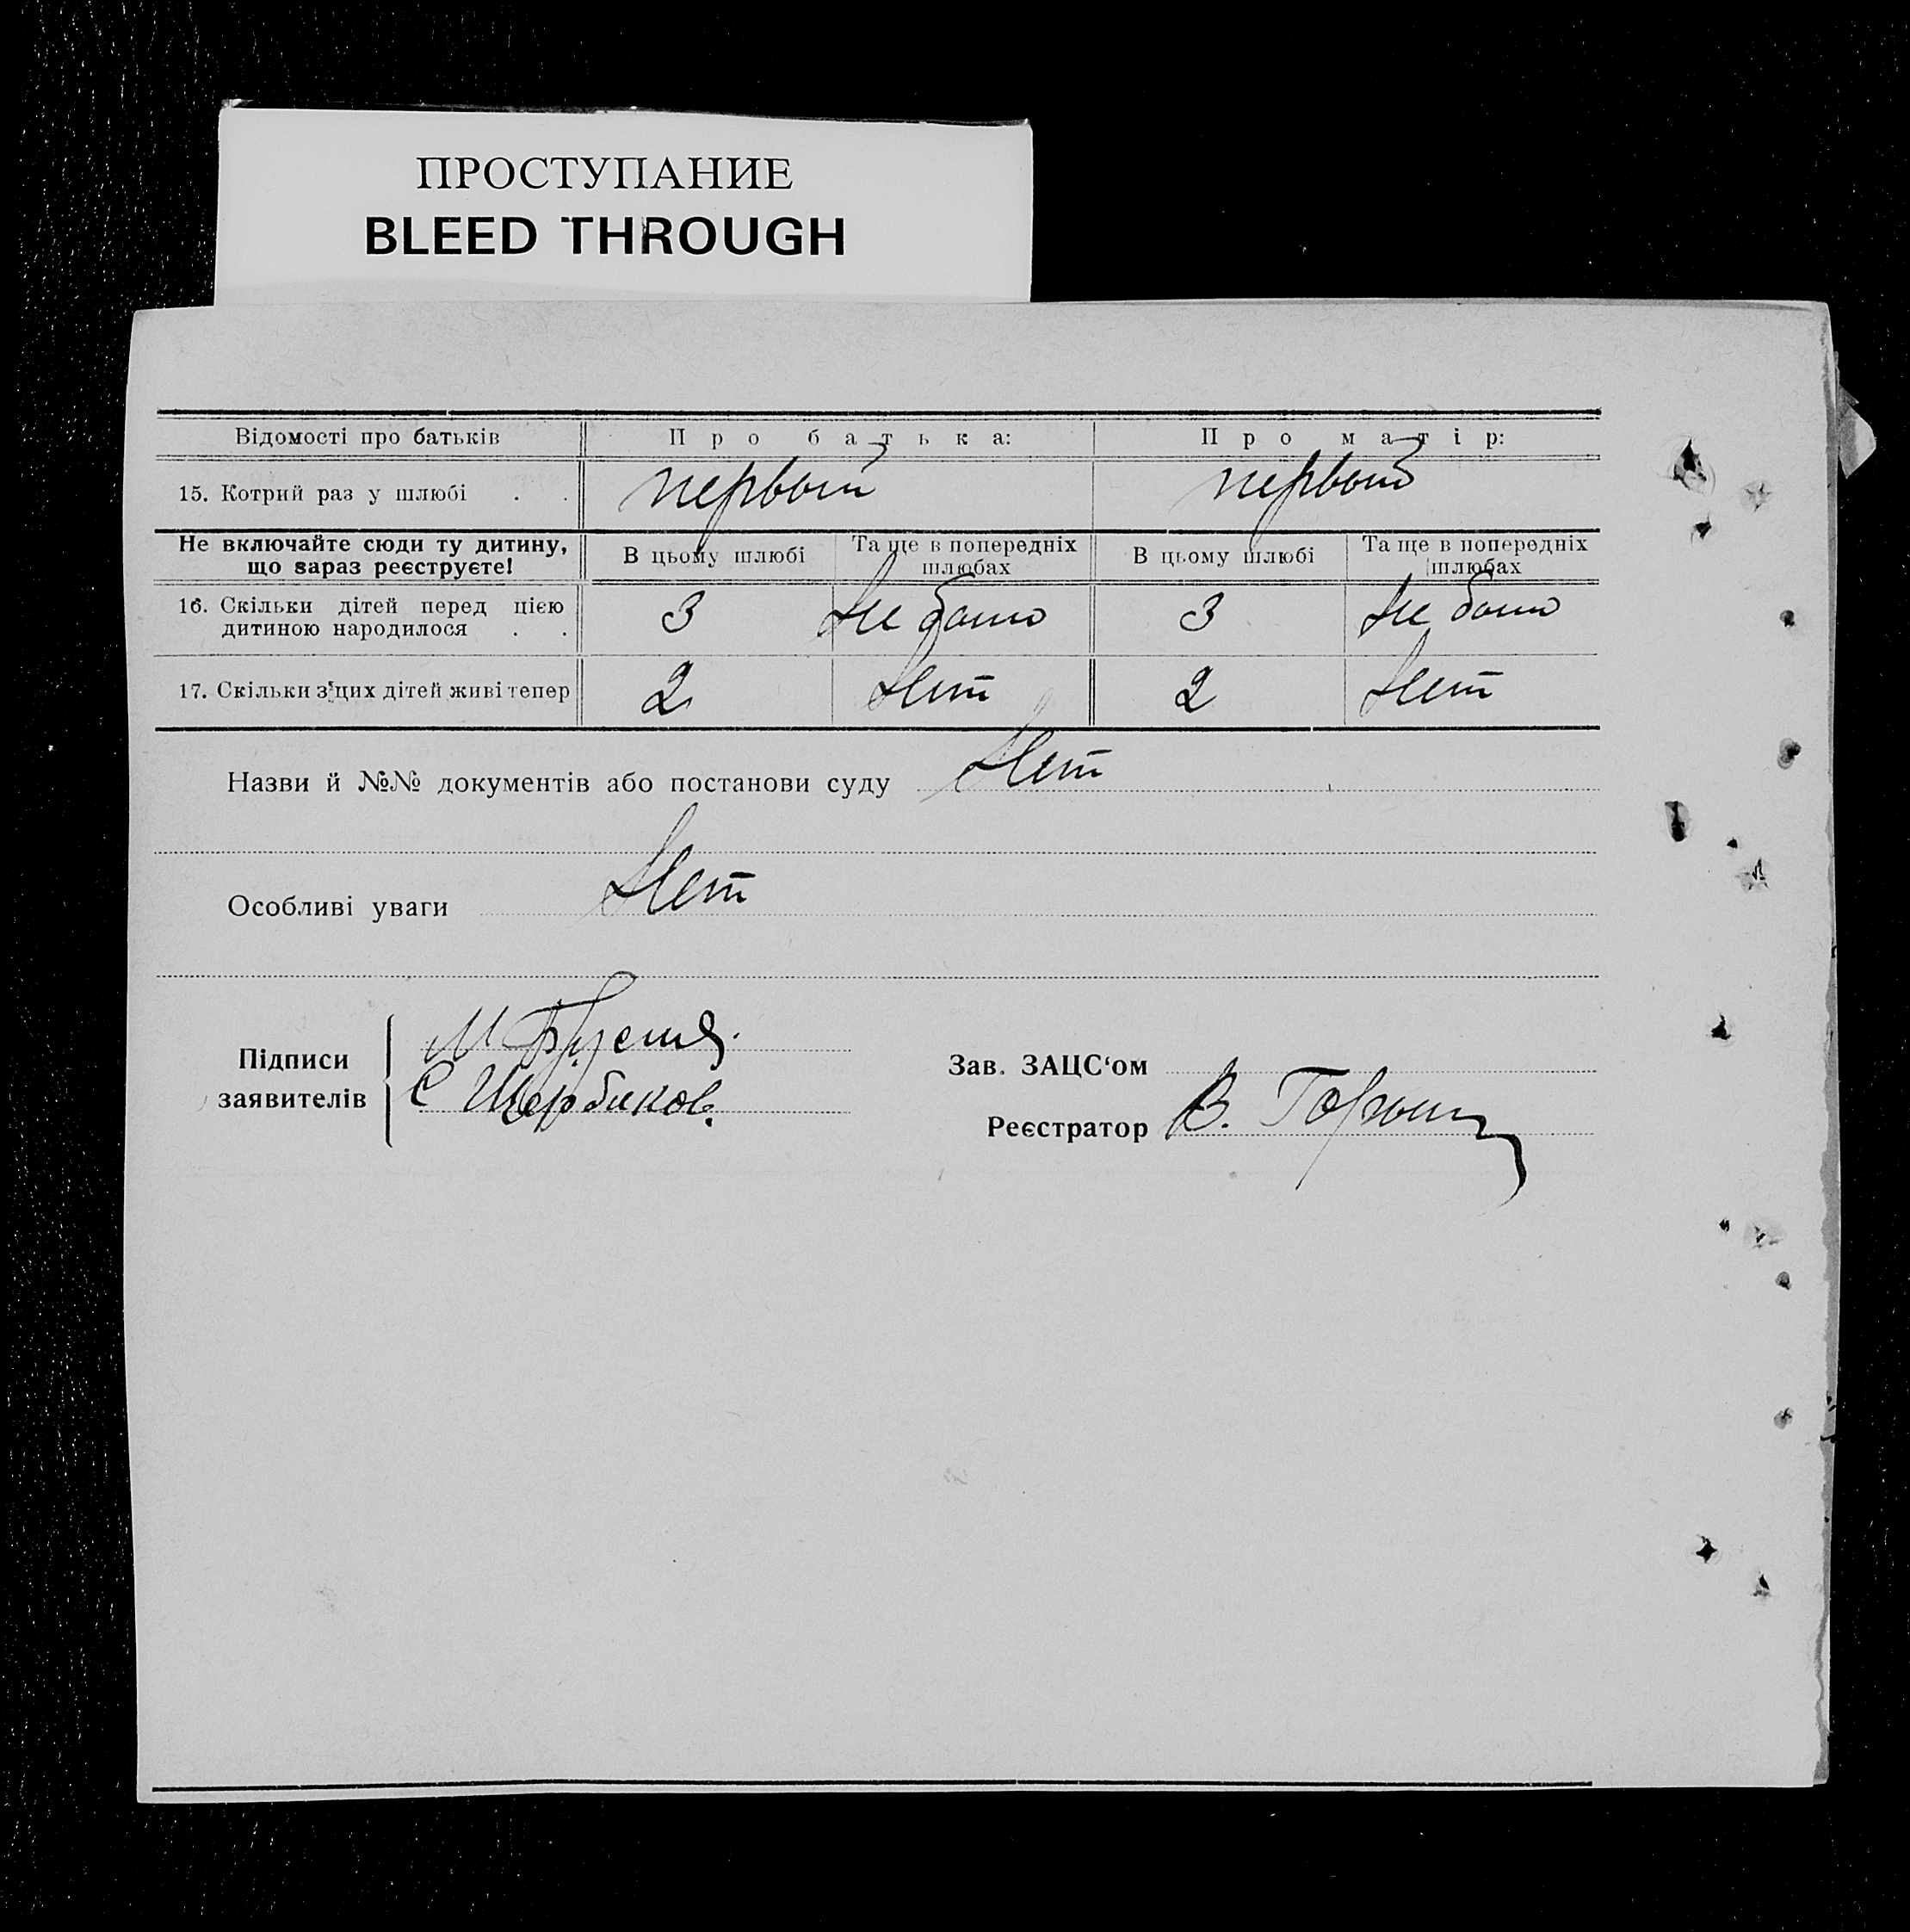 ПРОСТУПАНИЕ
BLEED THROUGH
Відомості про батьків Про батька: Про матір:
15. Котрий раз у шлюбі . . первый первый
Не включайте сюди ту дитину, що зараз реєструєте! В цьому шлюбі Та ще в попередніх шлюбах В цьому шлюбі Та ще в попередніх шлюбах
16. Скільки дітей перед цією дитиною народилося . . 3 Не было 3 Не было
17. Скільки з цих дітей живі тепер 2 Нет 2 Нет
Назви й №№ документів або постанови суду Нет
Особливі уваги Нет
Підписи заявителів
М
С Щербаков.
Зав. ЗАЦС‘ом
Реєстратор В.